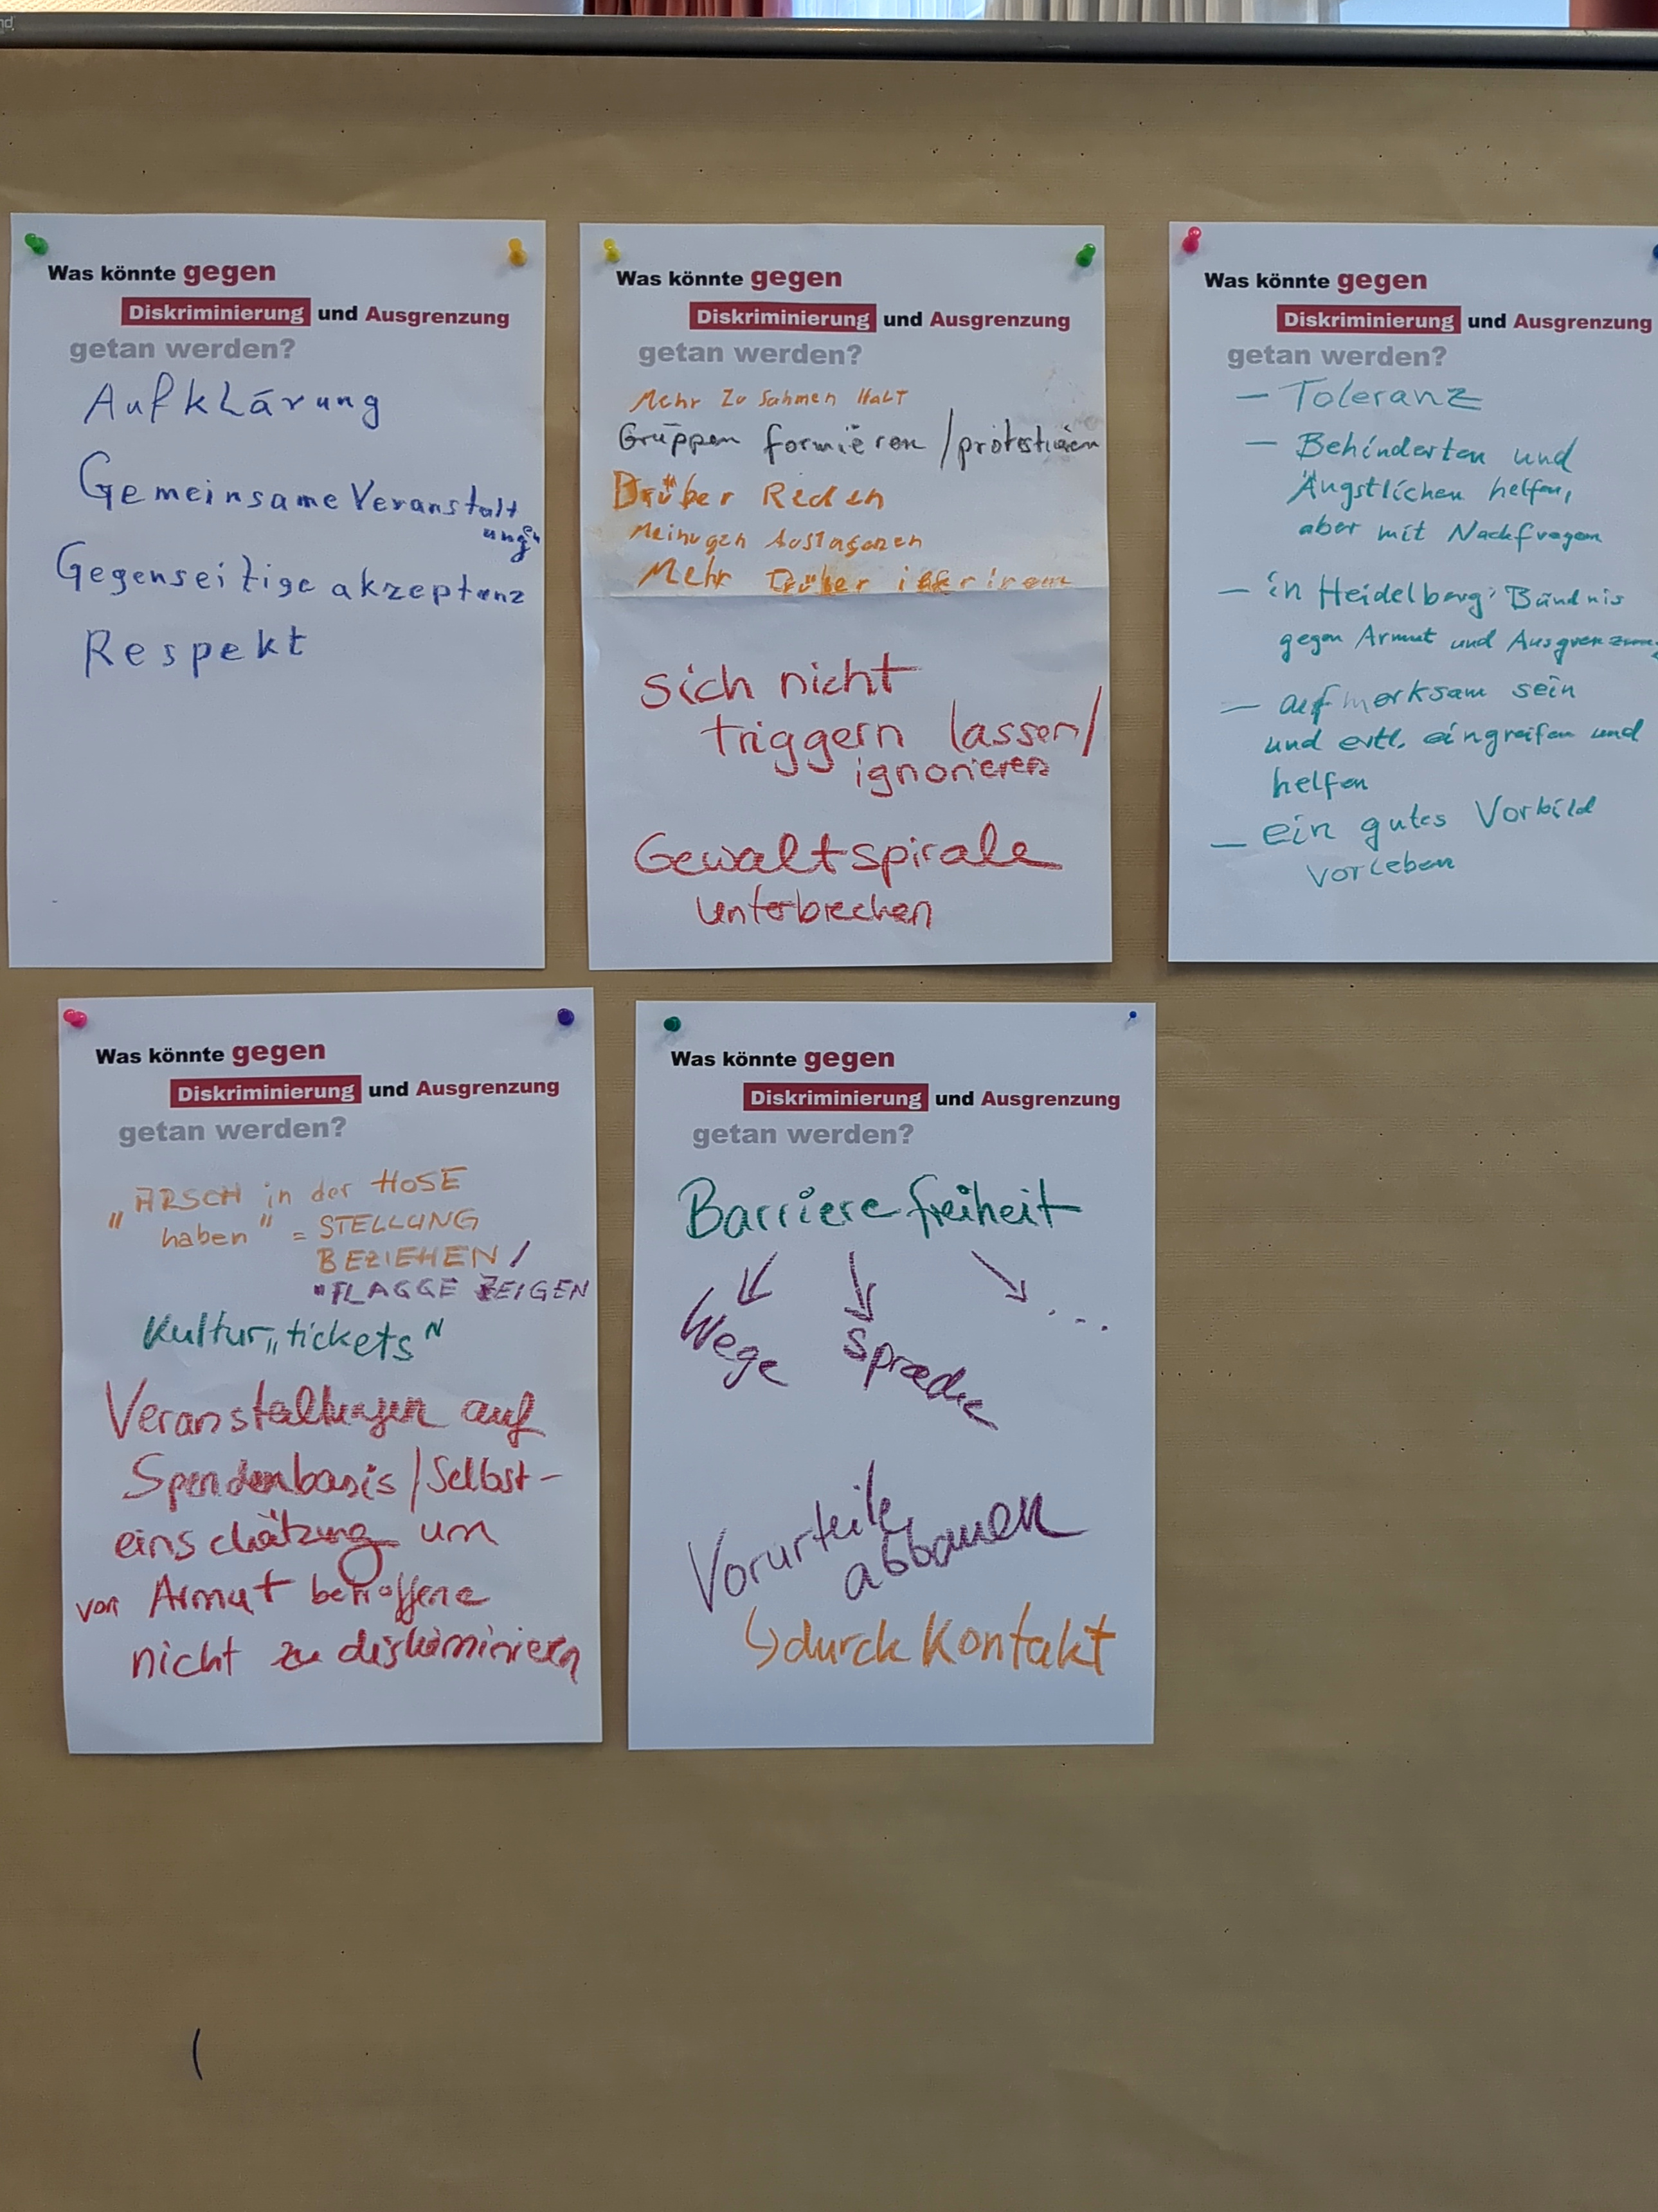 nd
Was könnte gegen
Diskriminierung und Ausgrenzung
getan werden?
Aufklärung
Gemeinsame Veranstalt
ungen
Gegenseitige akzeptanz
Respekt
Was könnte gegen
Diskriminierung und Ausgrenzung
getan werden?
Mehr Zu Sahmen Halt
Gruppen formieren / protestieren
Drüber Reden
Meinugen
Mehr Drüber
sich nicht
triggern lassen/
ignorieren
Gewaltspirale
unterbrechen
Was könnte gegen
Diskriminierung und Ausgrenzung
getan werden?
– Toleranz
– Behinderten und
Ängstlichen helfen,
aber mit Nachfragen
– in Heidelberg: Bündnis
gegen Armut und Ausgrenzung
– aufmerksam sein
und evtl. eingreifen und
helfen
– ein gutes Vorbild
vorleben
Was könnte gegen
Diskriminierung und Ausgrenzung
getan werden?
„ARSCH in der HOSE
haben" = STELLUNG
BEZIEHEN /
"FLAGGE ZEIGEN
Kultur„tickets"
Veranstaltungen auf
Spendenbasis/Selbst-
einschätzung um
von Armut betroffene
nicht zu diskriminieren
Was könnte gegen
Diskriminierung und Ausgrenzung
getan werden?
Barrierefreiheit
↙ ↓ ↘
Wege Sprache ...
Vorurteile
abbauen
↳ durch Kontakt
(